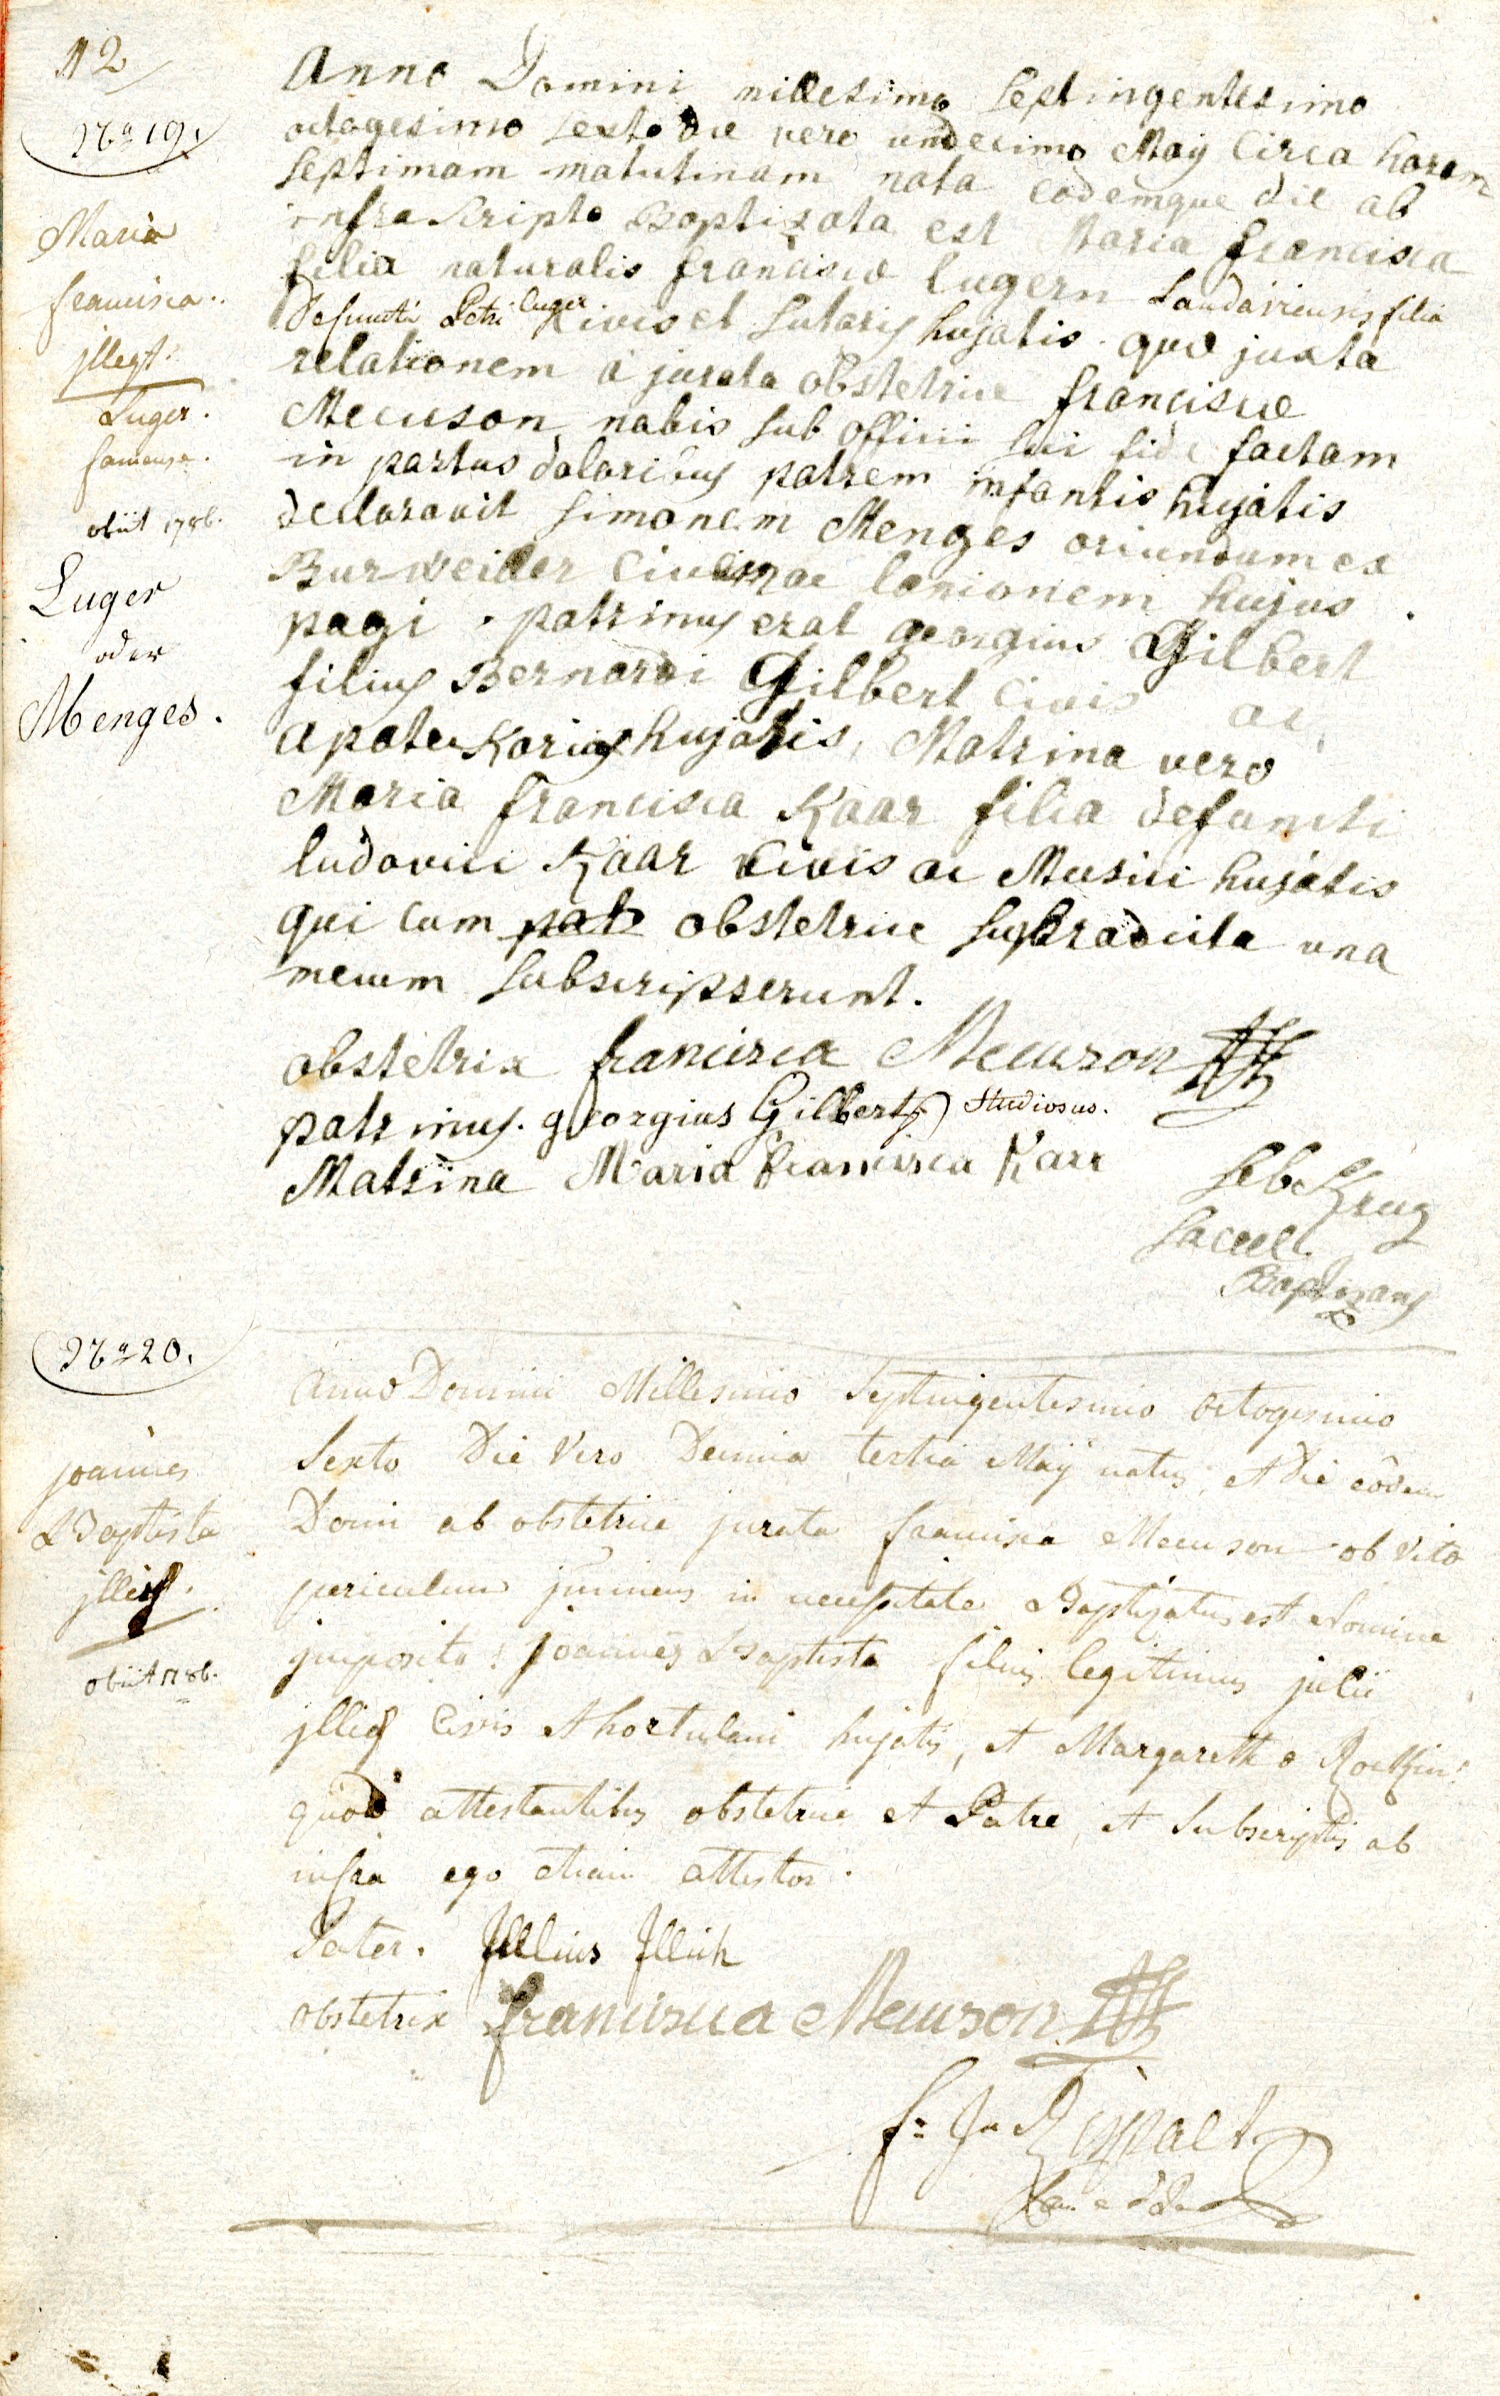 12
No 19.
Maria
francisca
jllegt.
Luger.
famensa.
obiit 1786.
Luger
oder
Menges.
Anno Domini millesimo septingentesimo
octogesimo sexto die vero undecimo Maÿ circa horam
septimam matutinam nata eodemque die ab
infra scripto Baptizata est Maria francisca
filia naturalis franciscæ lugern Landaviensis filia
defuncti Petri luger civis et sutoris hujatis. quæ juxta
relationem a jurata obstetrice franciscæ
Mecuson nobis sub officii sui fide factam
in partus doloribus patrem infantis hujatis
declaravit simonem Menges oriundum ex
Burweiler civem ac lanionem hujus
pagi. patrinus erat georgius Gilbert
filius Bernardi Gilbert civis ac
apotekarius hujatis, Matrina vero
Maria francisca Kaar filia defuncti
ludovici Kaar civis ac Musici hujatis
qui cum pat obstetrice supradicta una
mecum subscripserunt.
obstetrix francisca Mecuson
patrinus. georgius Gilbert studiosus.
Matrina Maria francisca Karr
Seb Krug
Sacell.
Baptizans
No 20.
joannes
Baptista
jllig.
obiit 1786.
Anno Domini Millesimo Septingentesimo octogesimo
Sexto Die Vero Decima tertia Maÿ natus, et Die eôdem
Domi ab obstetrice jurata francisca Mecuson ob vitæ
periculum jminens in necessitate Baptizatus est Nomine
jmposito: joannes Baptista filius legitimus julii
jllig Civis et hortulani hujatis, et Margarethæ
quod attestantibus obstetrice et Patre, et Subscriptis ab
infra ego etiam attestor.
Pater. Jullius Jllich
obstetrix francisca Mecuson